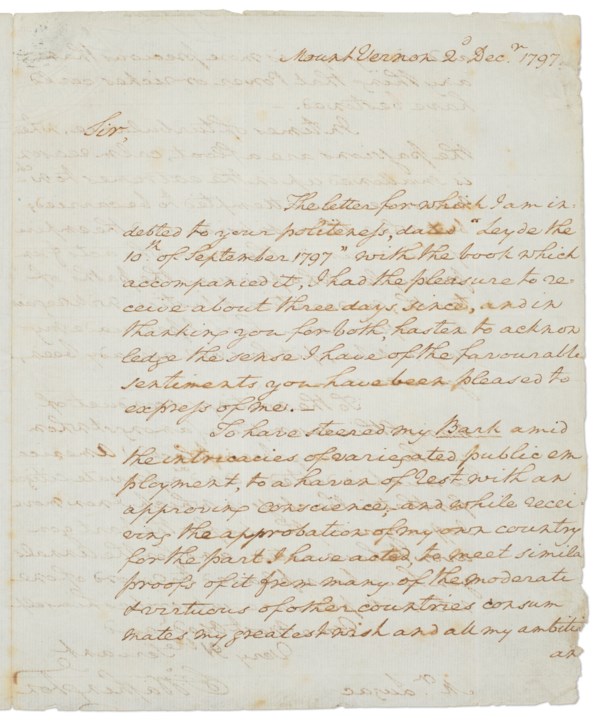 Mount Vernon 2d. Decr. 1797.
Sir,
The letter for which I am in
debted to your politeness, dated "Leyde the
10th. of September 1797" with the book which
accompanied it, I had the pleasure to re
ceive about three days since, and in
thanking you for both, hasten to acknow
ledge the sense I have of the favourable
sentiments you have been pleased to
express of me.
To have steered my Bark amid
the intricacies of variegated public em
ployment, to a haven of rest with an
approving conscience, and while recei
ving the approbation of my own country
for the part I have acted, to meet simila
proofs of it from many of the moderate
& virtuous of other countries consum
mates my greatest wish and all my ambiti
an